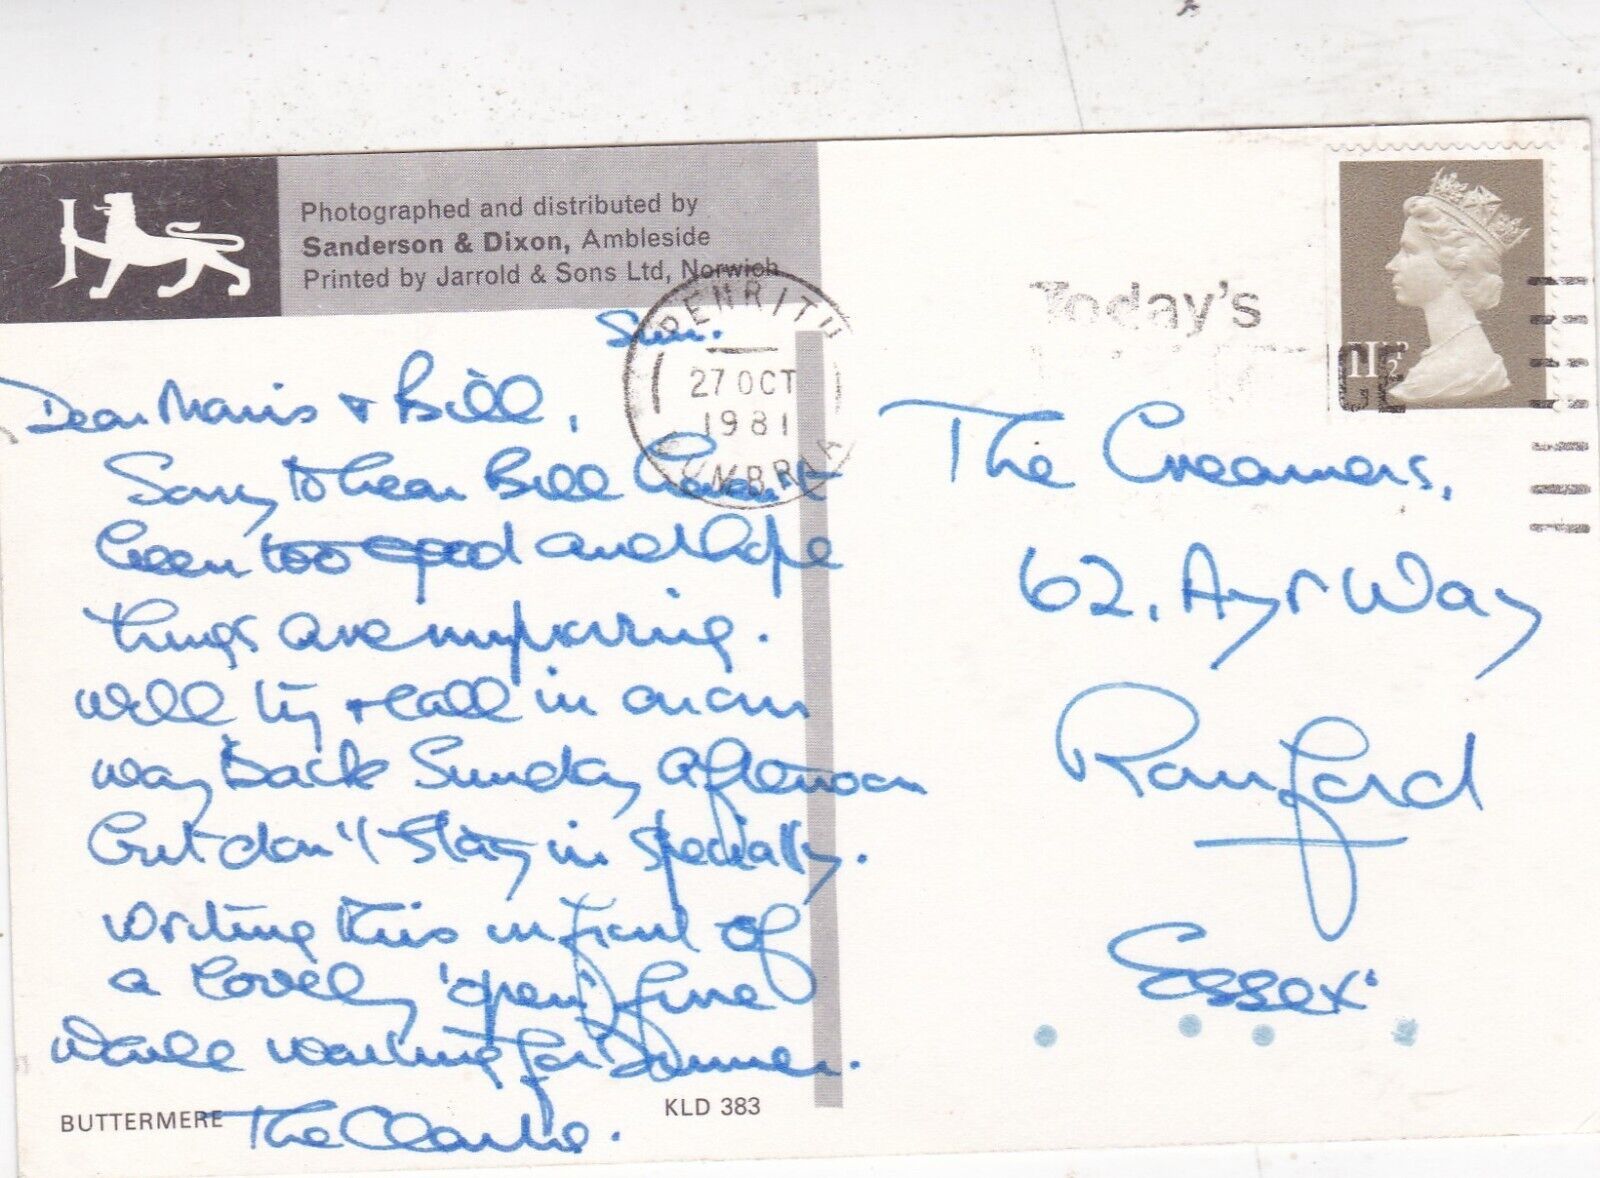 Photographed and distributed by
Sanderson & Dixon, Ambleside
Printed by Jarrold & Sons Ltd, Norwich
PENRITH
27 OCT
1981
CUMBRIA
Today's
CE
11½P
Sun.
Dear Mavis & Bill,
Sorry to hear Bill
been too good and hope
things are improving.
Will try & call in on our
way back Sunday afternoon
but don't stay in specially.
Writing this in front of
a lovely 'open' fire
while waiting for Dinner.
The Clarke.
The Creamers,
62, Ayr Way
Romford
Essex
BUTTERMERE
KLD 383